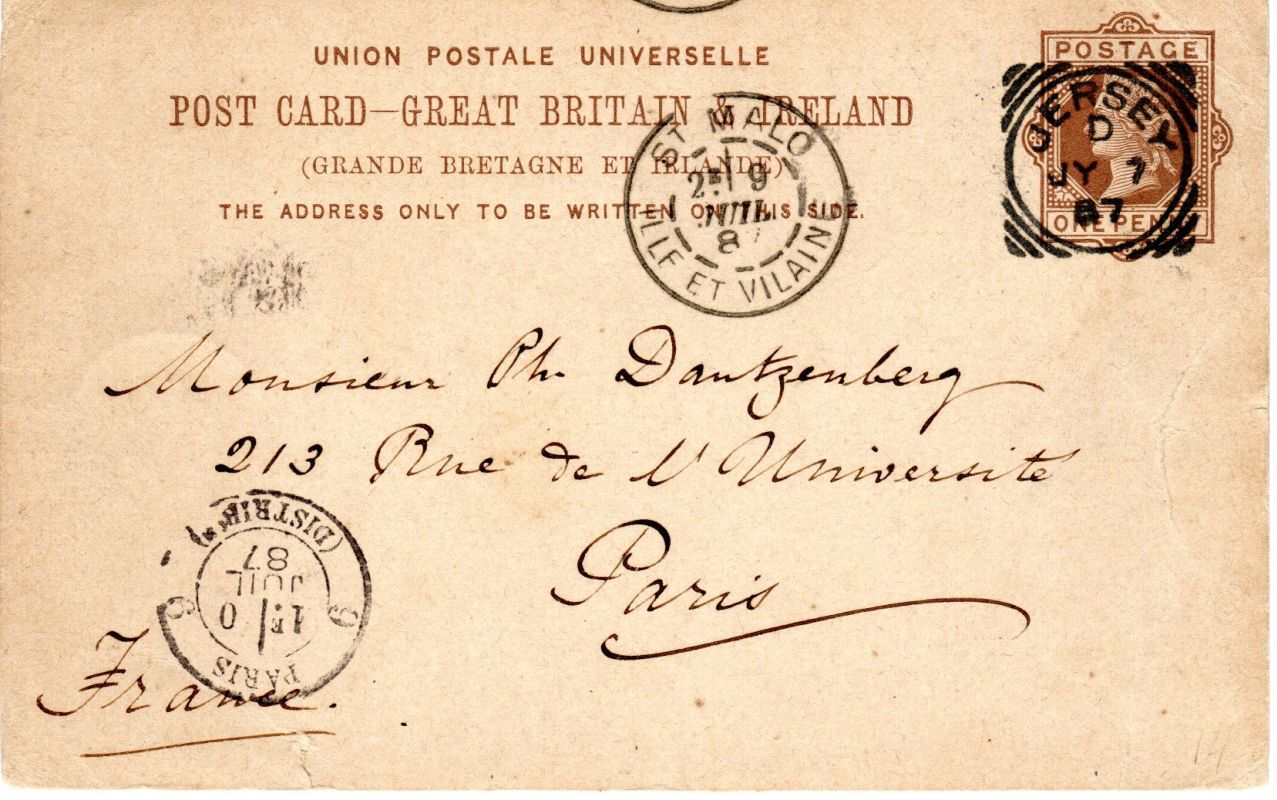 UNION POSTALE UNIVERSELLE
POST CARD—GREAT BRITAIN & IRELAND
(GRANDE BRETAGNE ET IRLANDE)
THE ADDRESS ONLY TO BE WRITTEN ON THIS SIDE.
POSTAGE
ONE PENNY
JERSEY
D
JY 7
87
ST MALO
2E 9
JUIL
8
ILLE ET VILAINE
Monsieur Ph. Dautzenberg
213 Rue de l'Université
Paris
France.
PARIS
1E 0
JUIL
87
(DISTRIBON)
14